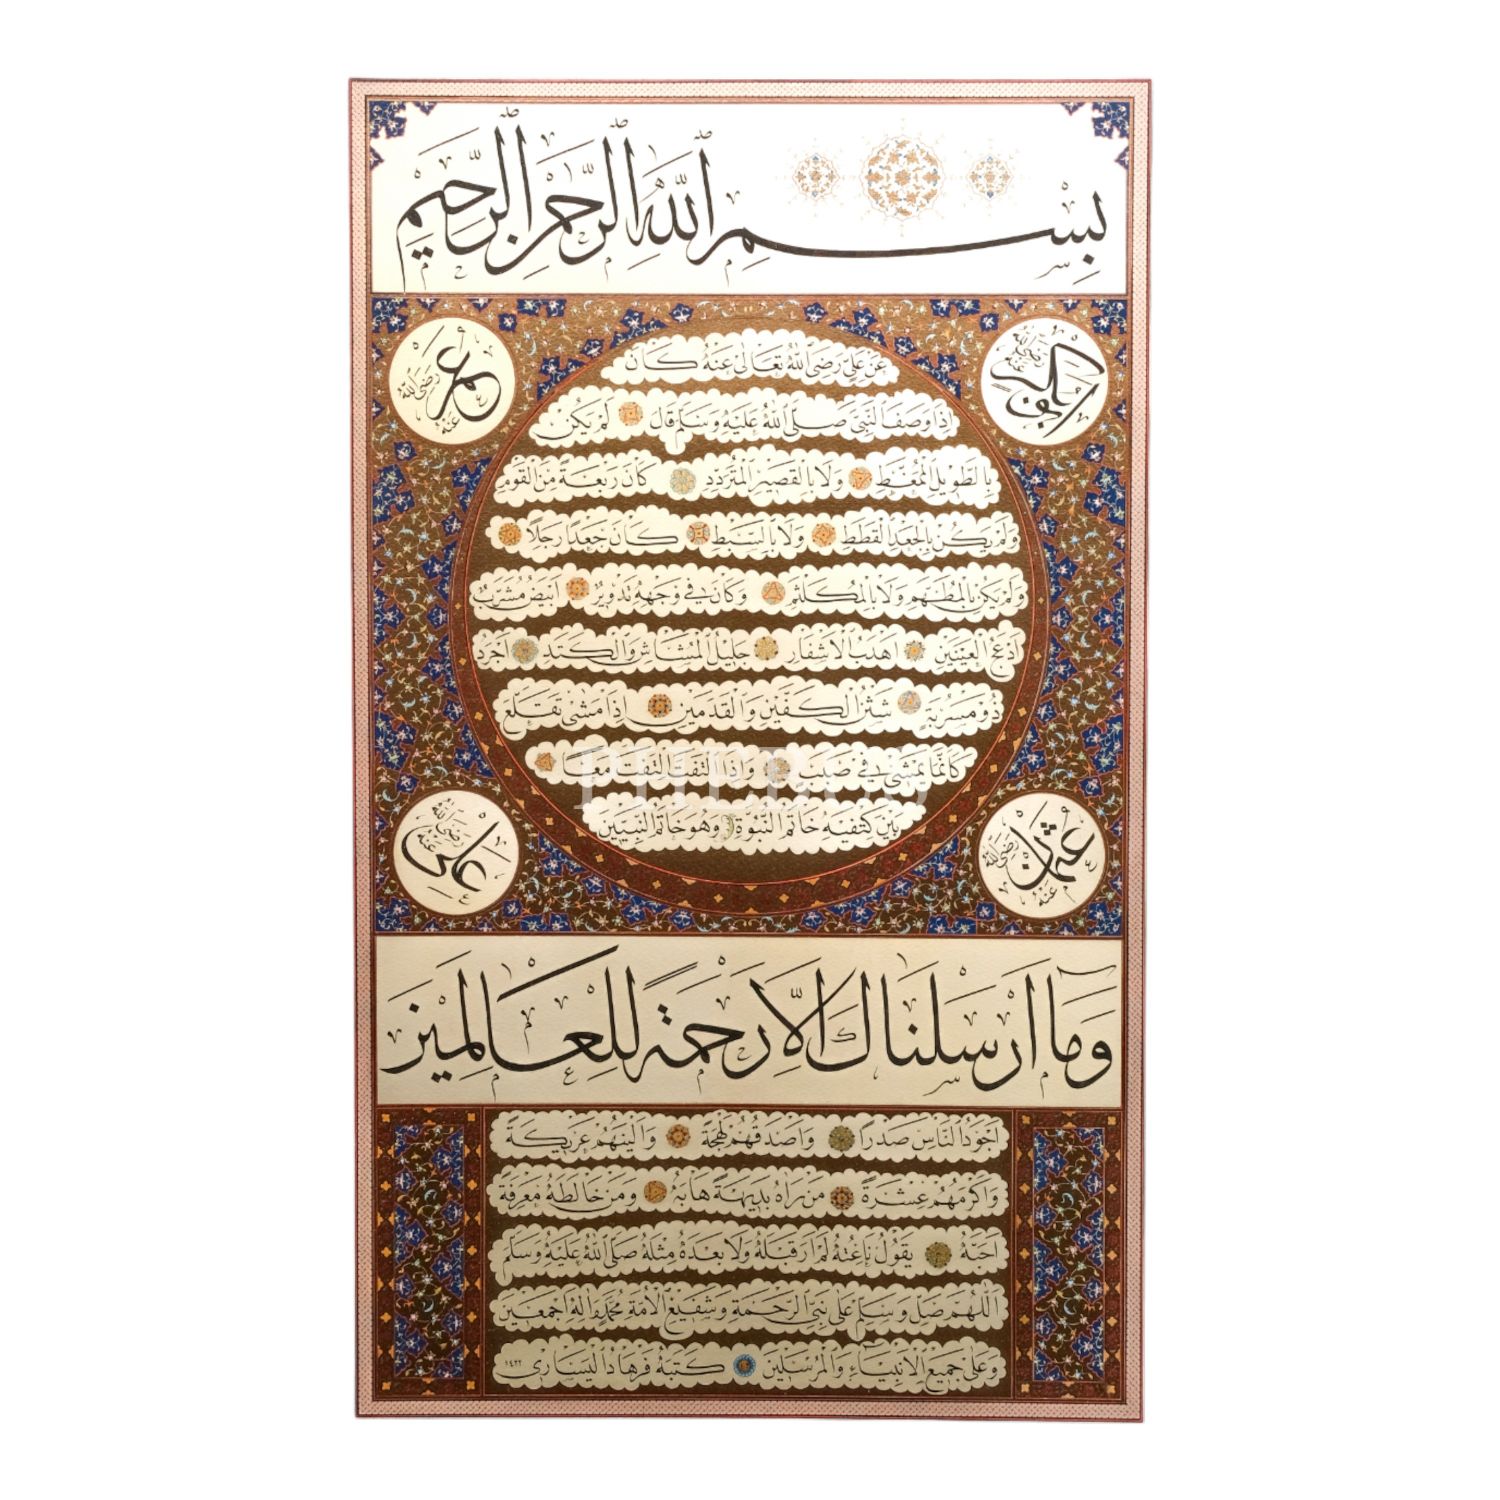 بِسْمِ اللّٰهِ الرَّحْمٰنِ الرَّحِيمِ
ابوبكر رضى الله عنه
عمر رضى الله عنه
عن علي رضى الله تعالى عنه كان
اذا وصف النبى صلى الله عليه وسلم قال لم يكن
بالطويل الممغط ولا بالقصير المتردد كان ربعة من القوم
ولم يكن بالجعد القطط ولا بالسبط كان جعدا رجلا
ولم يكن بالمطهم ولا بالمكلثم وكان في وجهه تدوير ابيض مشرب
ادعج العينين اهدب الاشفار جليل المشاش والكتد اجرد
ذو مسربة شثن الكفين والقدمين اذا مشى تقلع
كانما يمشى في صبب واذا التفت التفت معا
بين كتفيه خاتم النبوة وهو خاتم النبيين
عثمن رضى الله عنه
على رضى الله عنه
وَمَا اَرْسَلْنَاكَ اِلَّا رَحْمَةً لِلْعَالَمِينَ
اجود الناس صدرا واصدقهم لهجة والينهم عريكة
واكرمهم عشرة من راه بديهة هابه ومن خالطه معرفة
احبه يقول ناعته لم ار قبله ولا بعده مثله صلى الله عليه وسلم
اللهم صل وسلم على نبى الرحمة وشفيع الامة محمد واله اجمعين
وعلى جميع الانبياء والمرسلين كتبه فرهاد اليسارى ١٤٢٢
PHEBUS